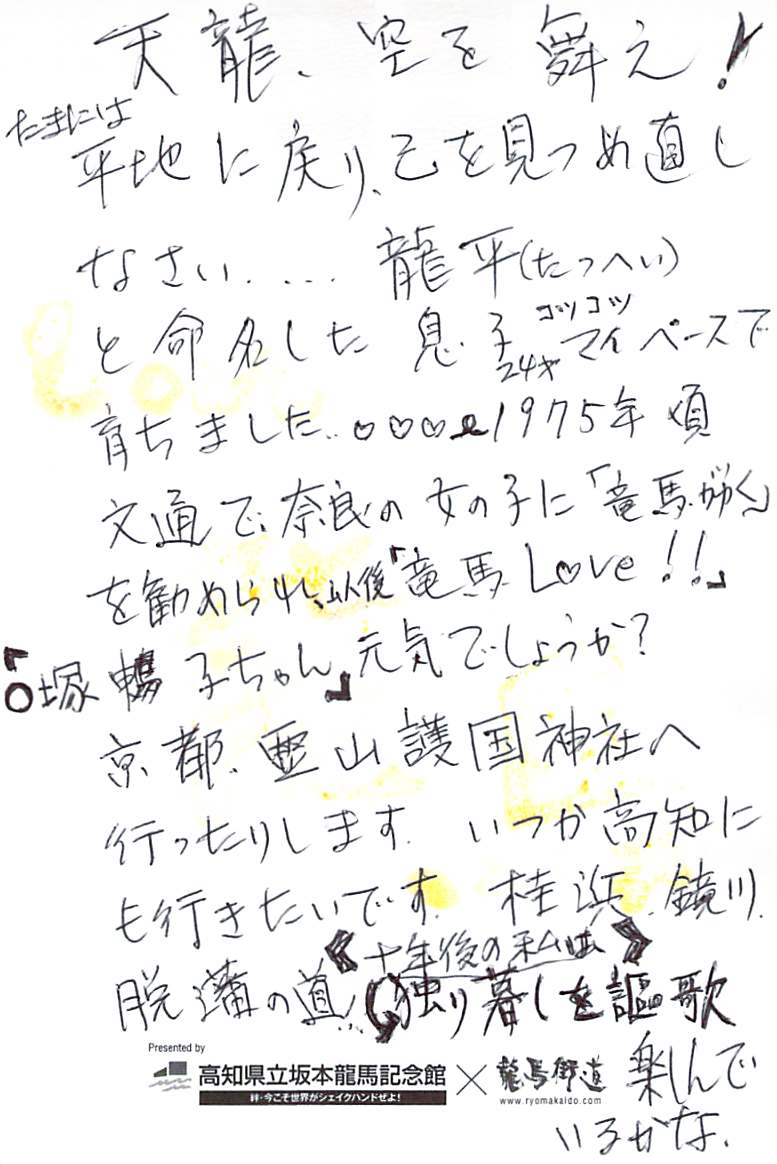 天龍、空を舞え!
たまには
平地に戻り、己を見つめ直し
なさい.....龍平(たつへい)
と命名した息子 コツコツ
24才 マイペースで
育ちました..♡♡♡ 1975年頃
文通で奈良の女の子に「竜馬がゆく」
を勧められ、以後『竜馬Love!!』
『〇塚 子ちゃん』元気でしょうか?
京都、霊山護国神社へ
行ったりします. いつか高知に
も行きたいです. 桂浜.鏡川.
《十年後の私は》
脱藩の道... 独り暮しを謳歌
楽しんで
いるかな.
Presented by
高知県立坂本龍馬記念館 × 龍馬街道
絆・今こそ世界がシェイクハンドぜよ!
www.ryomakaido.com